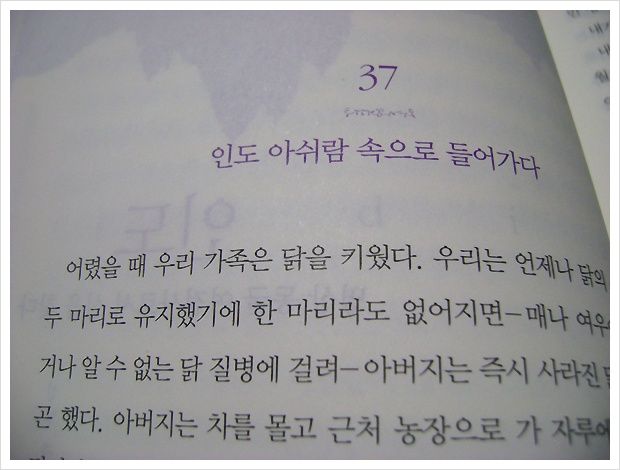 37
인도 아쉬람 속으로 들어가다
어렸을 때 우리 가족은 닭을 키웠다. 우리는 언제나 닭의
두 마리로 유지했기에 한 마리라도 없어지면–매나 여우
거나 알 수 없는 닭 질병에 걸려–아버지는 즉시 사라진
곤 했다. 아버지는 차를 몰고 근처 농장으로 가 자루에